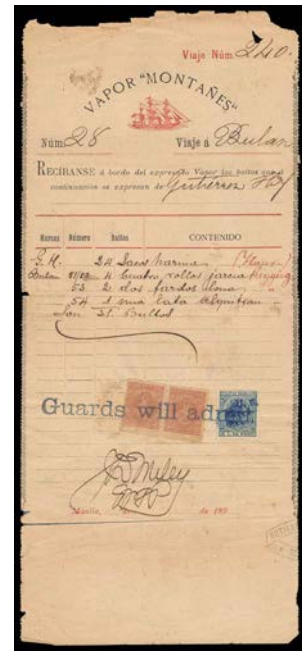 Viaje Núm. 240.
VAPOR "MONTAÑES"
Núm. 28 Viaje á Bulan
RECÍBANSE á bordo del expresado Vapor los bultos que á
continuación se expresan de Gutierrez Hos
Marcas Número Bultos CONTENIDO
G. H. 24 Sacos harina
Bulan 4 Cuatro rollos jarcia Rigging
53 2 dos fardos lona "
54 1 una lata
Son 31 Bultos
Guards will admit
Manila, de de 189